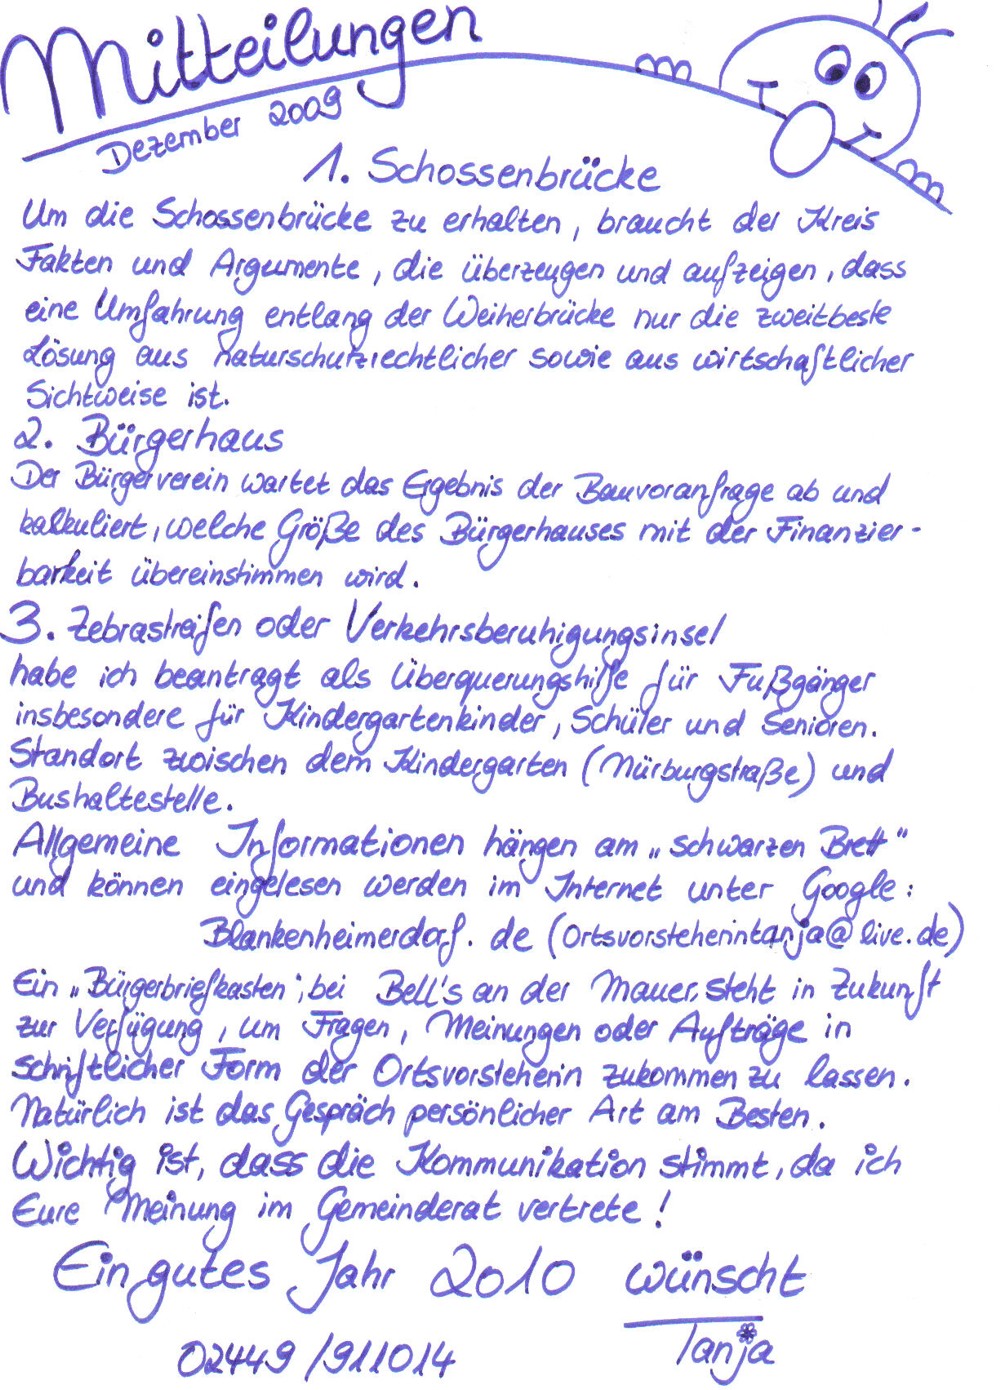 Mitteilungen
Dezember 2009
1. Schossenbrücke
Um die Schossenbrücke zu erhalten, braucht der Kreis
Fakten und Argumente, die überzeugen und aufzeigen, dass
eine Umfahrung entlang der Weiherbrücke nur die zweitbeste
Lösung aus naturschutzrechtlicher sowie aus wirtschaftlicher
Sichtweise ist.
2. Bürgerhaus
Der Bürgerverein wartet das Ergebnis der Bauvoranfrage ab und
kalkuliert, welche Größe des Bürgerhauses mit der Finanzier-
barkeit übereinstimmen wird.
3. Zebrastreifen oder Verkehrsberuhigungsinsel
habe ich beantragt als Überquerungshilfe für Fußgänger
insbesondere für Kindergartenkinder, Schüler und Senioren.
Standort zwischen dem Kindergarten (Nürburgstraße) und
Bushaltestelle.
Allgemeine Informationen hängen am „schwarzen Brett"
und können eingelesen werden im Internet unter Google:
Blankenheimerdorf. de (Ortsvorsteherintanja@live.de)
Ein „Bürgerbriefkasten", bei Bell's an der Mauer, steht in Zukunft
zur Verfügung, um Fragen, Meinungen oder Aufträge in
schriftlicher Form der Ortsvorsteherin zukommen zu lassen.
Natürlich ist das Gespräch persönlicher Art am Besten.
Wichtig ist, dass die Kommunikation stimmt, da ich
Eure Meinung im Gemeinderat vertrete!
Ein gutes Jahr 2010 wünscht
Tanja
02449/911014